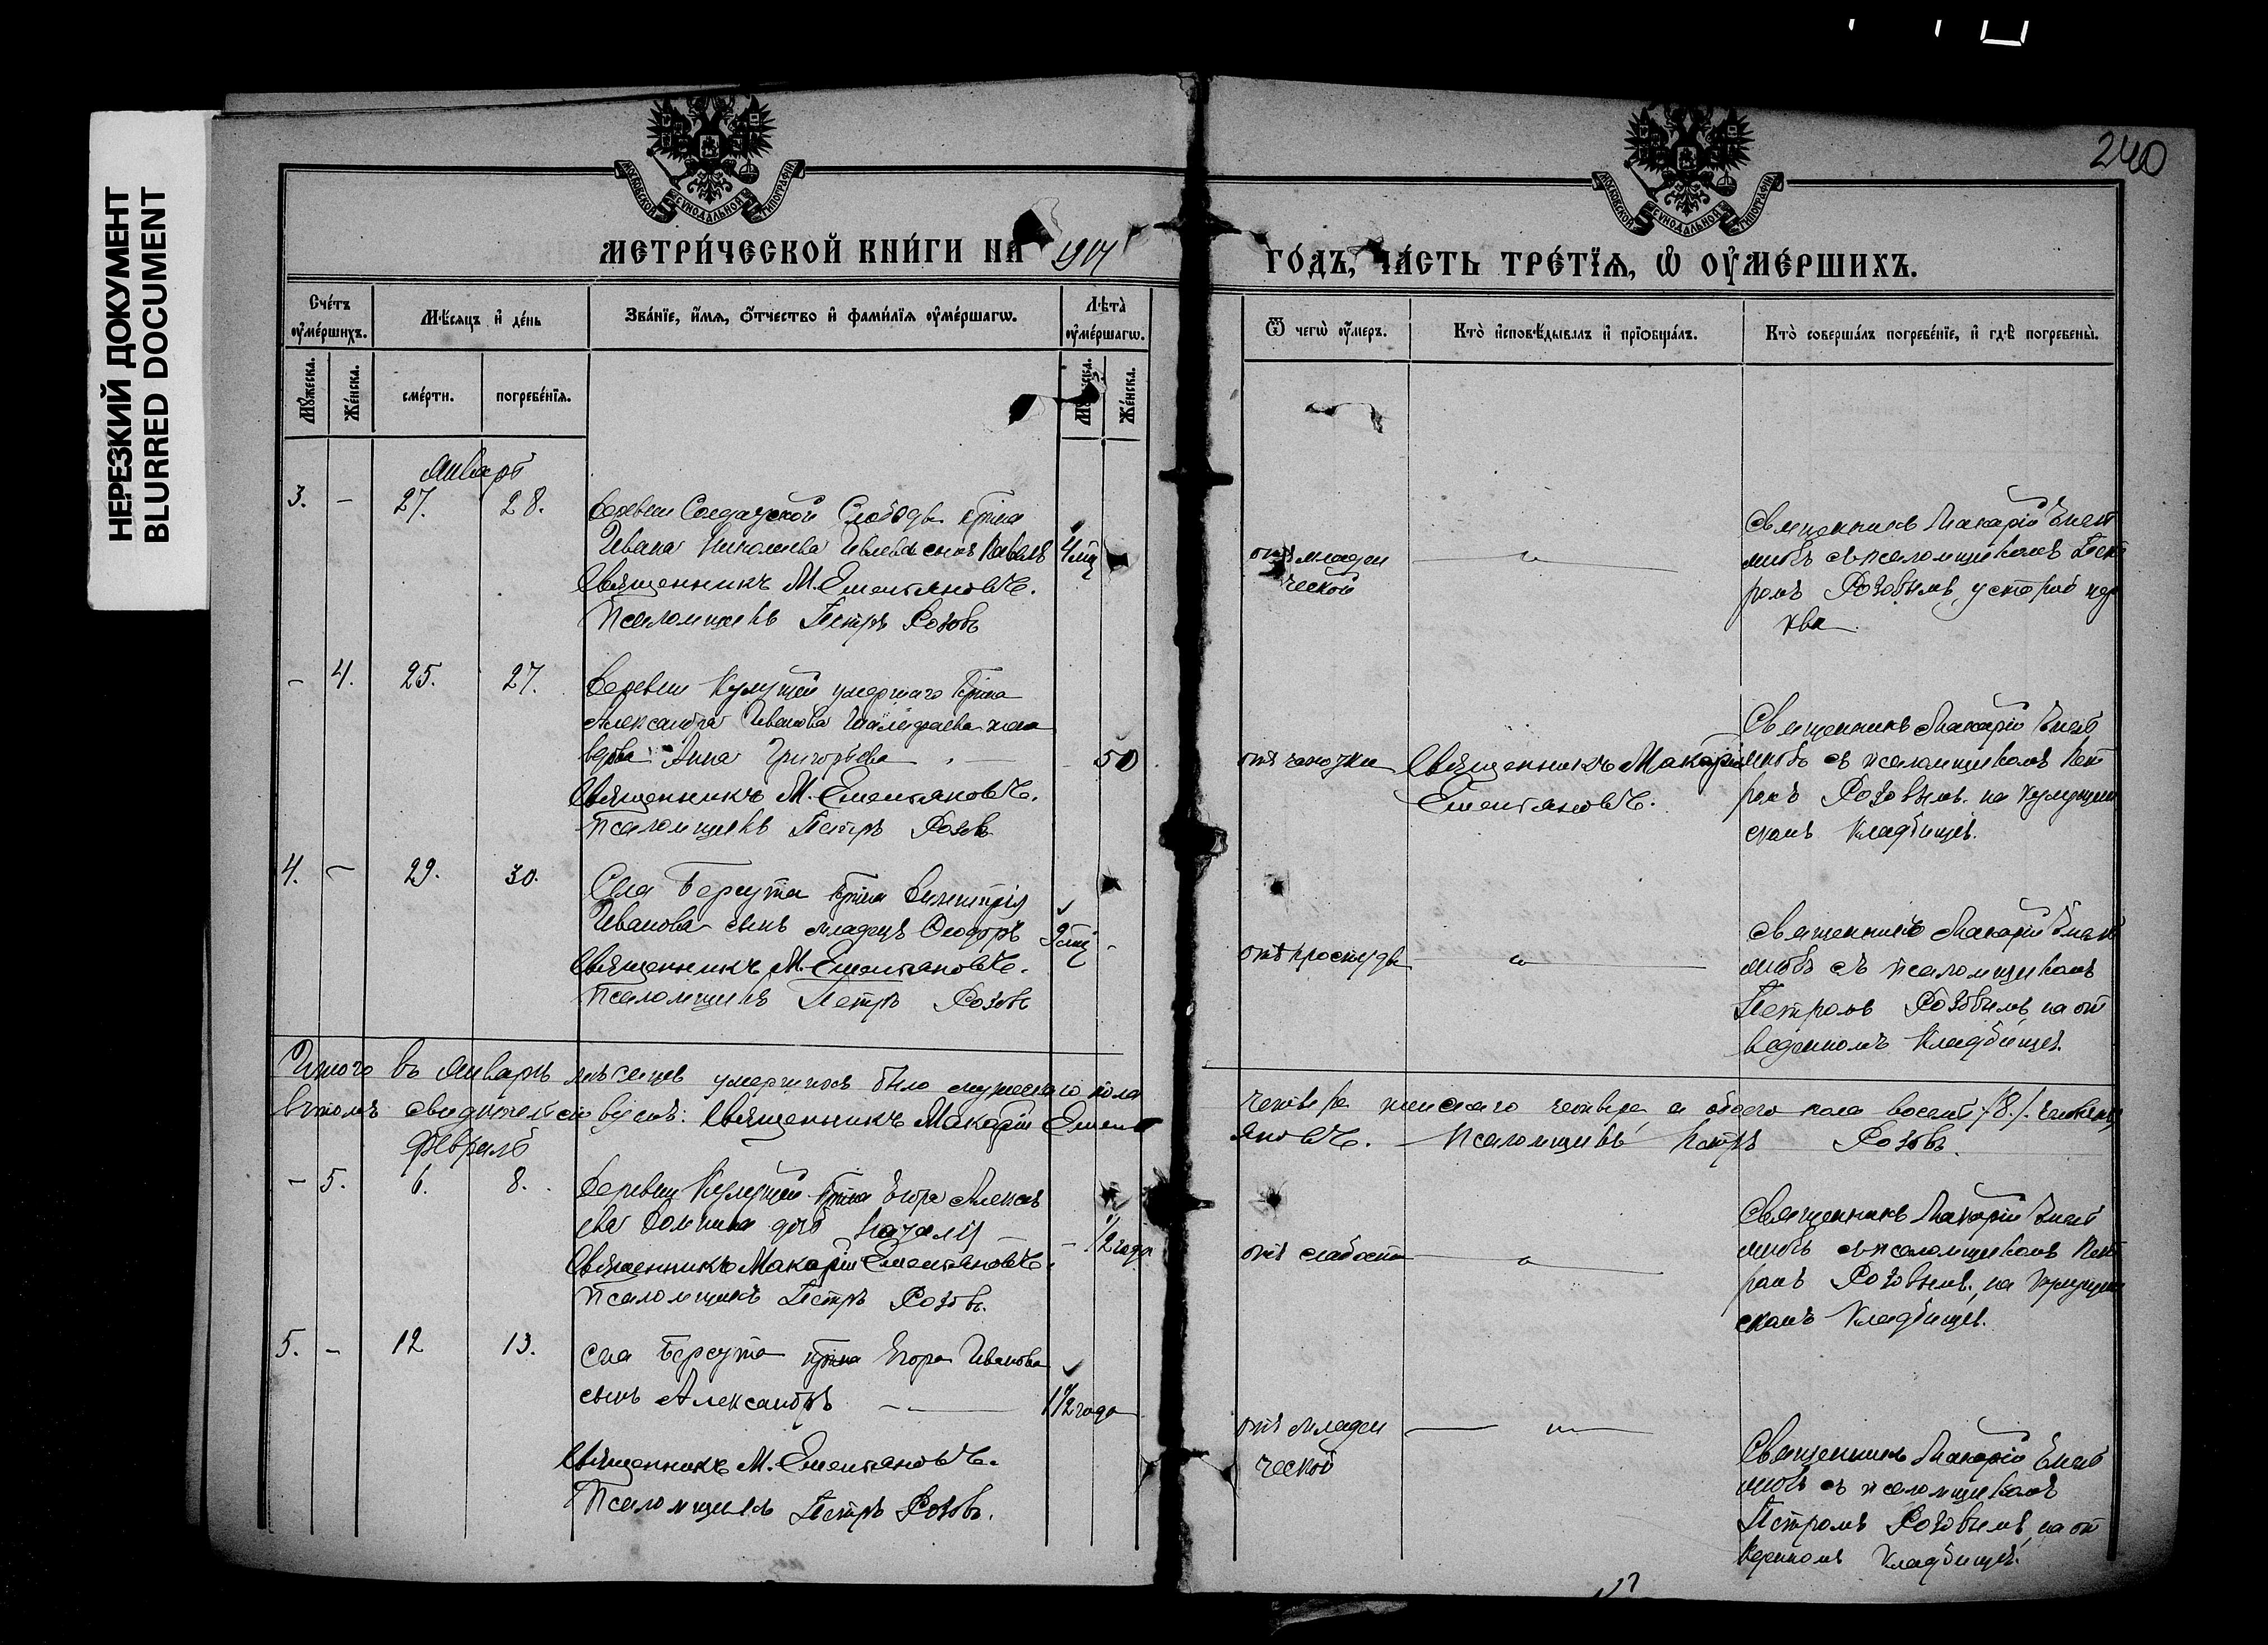 НЕРЕЗКИЙ ДОКУМЕНТ
BLURRED DOCUMENT
240
МОСКОВСКОЙ СѴНОДАЛЬНОЙ ТИПОГРАФІИ
МОСКОВСКОЙ СѴНОДАЛЬНОЙ ТИПОГРАФІИ
МЕТРИ́ЧЕСКОЙ КНИ́ГИ НА
ГО́ДЪ, ЧА́СТЬ ТРЕ́ТЇѦ, Ѡ҆ ОУ҆МЕ́РШИХЪ.
Сче́тъ оу҆ме́ршихъ.
Мꙋ́жеска.
Же́нска.
Мѣ́сяцъ и҆ де́нь
сме́рти.
погребе́нїя.
Зва́нїе, и҆́мя, ѻ҆́тчество и҆ фами́лїя оу҆ме́ршагѡ.
Лѣ́та оу҆ме́ршагѡ.
Мꙋ́жеска.
Же́нска.
Ѿ чегѡ̀ оу҆́меръ.
Кто̀ и҆сповѣ́дывалъ и҆ прїѡбща́лъ.
Кто̀ соверша́лъ погребе́нїе, и҆ гдѣ̀ погребены̀.
Январь
3. - 27. 28.
Деревни Солдатской Слободы кр-на
Ивана Николаева Ивлева сынъ Павелъ
Священникъ М. Емельяновъ.
Псаломщикъ Петръ Розовъ
отъ младен
ческой
Священникъ Макарій Емель
яновъ съ псаломщикомъ Пет
ромъ Розовымъ, у старой цер
кви
- 4. 25. 27.
Деревни Кулущи умершаго кр-на
Александра Иванова жена
вдова Анна Григорьева
50
Священникъ М. Емельяновъ.
Псаломщикъ Петръ Розовъ
отъ чахотки
Священникъ Макарій
Емельяновъ.
Священникъ Макарій Емель
яновъ съ псаломщикомъ Пет
ромъ Розовымъ на Кулущин
скомъ кладбищѣ.
4. - 29. 30.
Села Берсута кр-на Димитрія
Иванова сынъ младецъ Ѳеодоръ
Священникъ М. Емельяновъ.
Псаломщикъ Петръ Розовъ
отъ простуды
Священникъ Макарій Емель
яновъ съ псаломщикомъ
Петромъ Розовымъ на от
веденномъ кладбищѣ.
Итого въ Январѣ мѣсяцѣ умершихъ было мужескаго пола
четыре женскаго четыре, а обоего пола восемь /8./ человѣкъ
въ томъ свидѣтельствуемъ: Священникъ Макарій Емель
яновъ. Псаломщикъ Петръ Розовъ.
Февраль
- 5. 6. 8.
Деревни Кулущи кр-на Егора Алексѣ
ева дочь Наталія
1/2 года
Священникъ Макарій Емельяновъ.
Псаломщикъ Петръ Розовъ.
отъ слабости
Священникъ Макарій Емель
яновъ съ псаломщикомъ Пет
ромъ Розовымъ, на Кулущин
скомъ кладбищѣ.
5. - 12 13.
Села Берсута кр-на Егора Иванова
сынъ Александръ
1 1/2 года
Священникъ М. Емельяновъ.
Псаломщикъ Петръ Розовъ.
отъ младен
ческой
Священникъ Макарій Емель
яновъ съ псаломщикомъ
Петромъ Розовымъ, на от
веденномъ кладбищѣ.